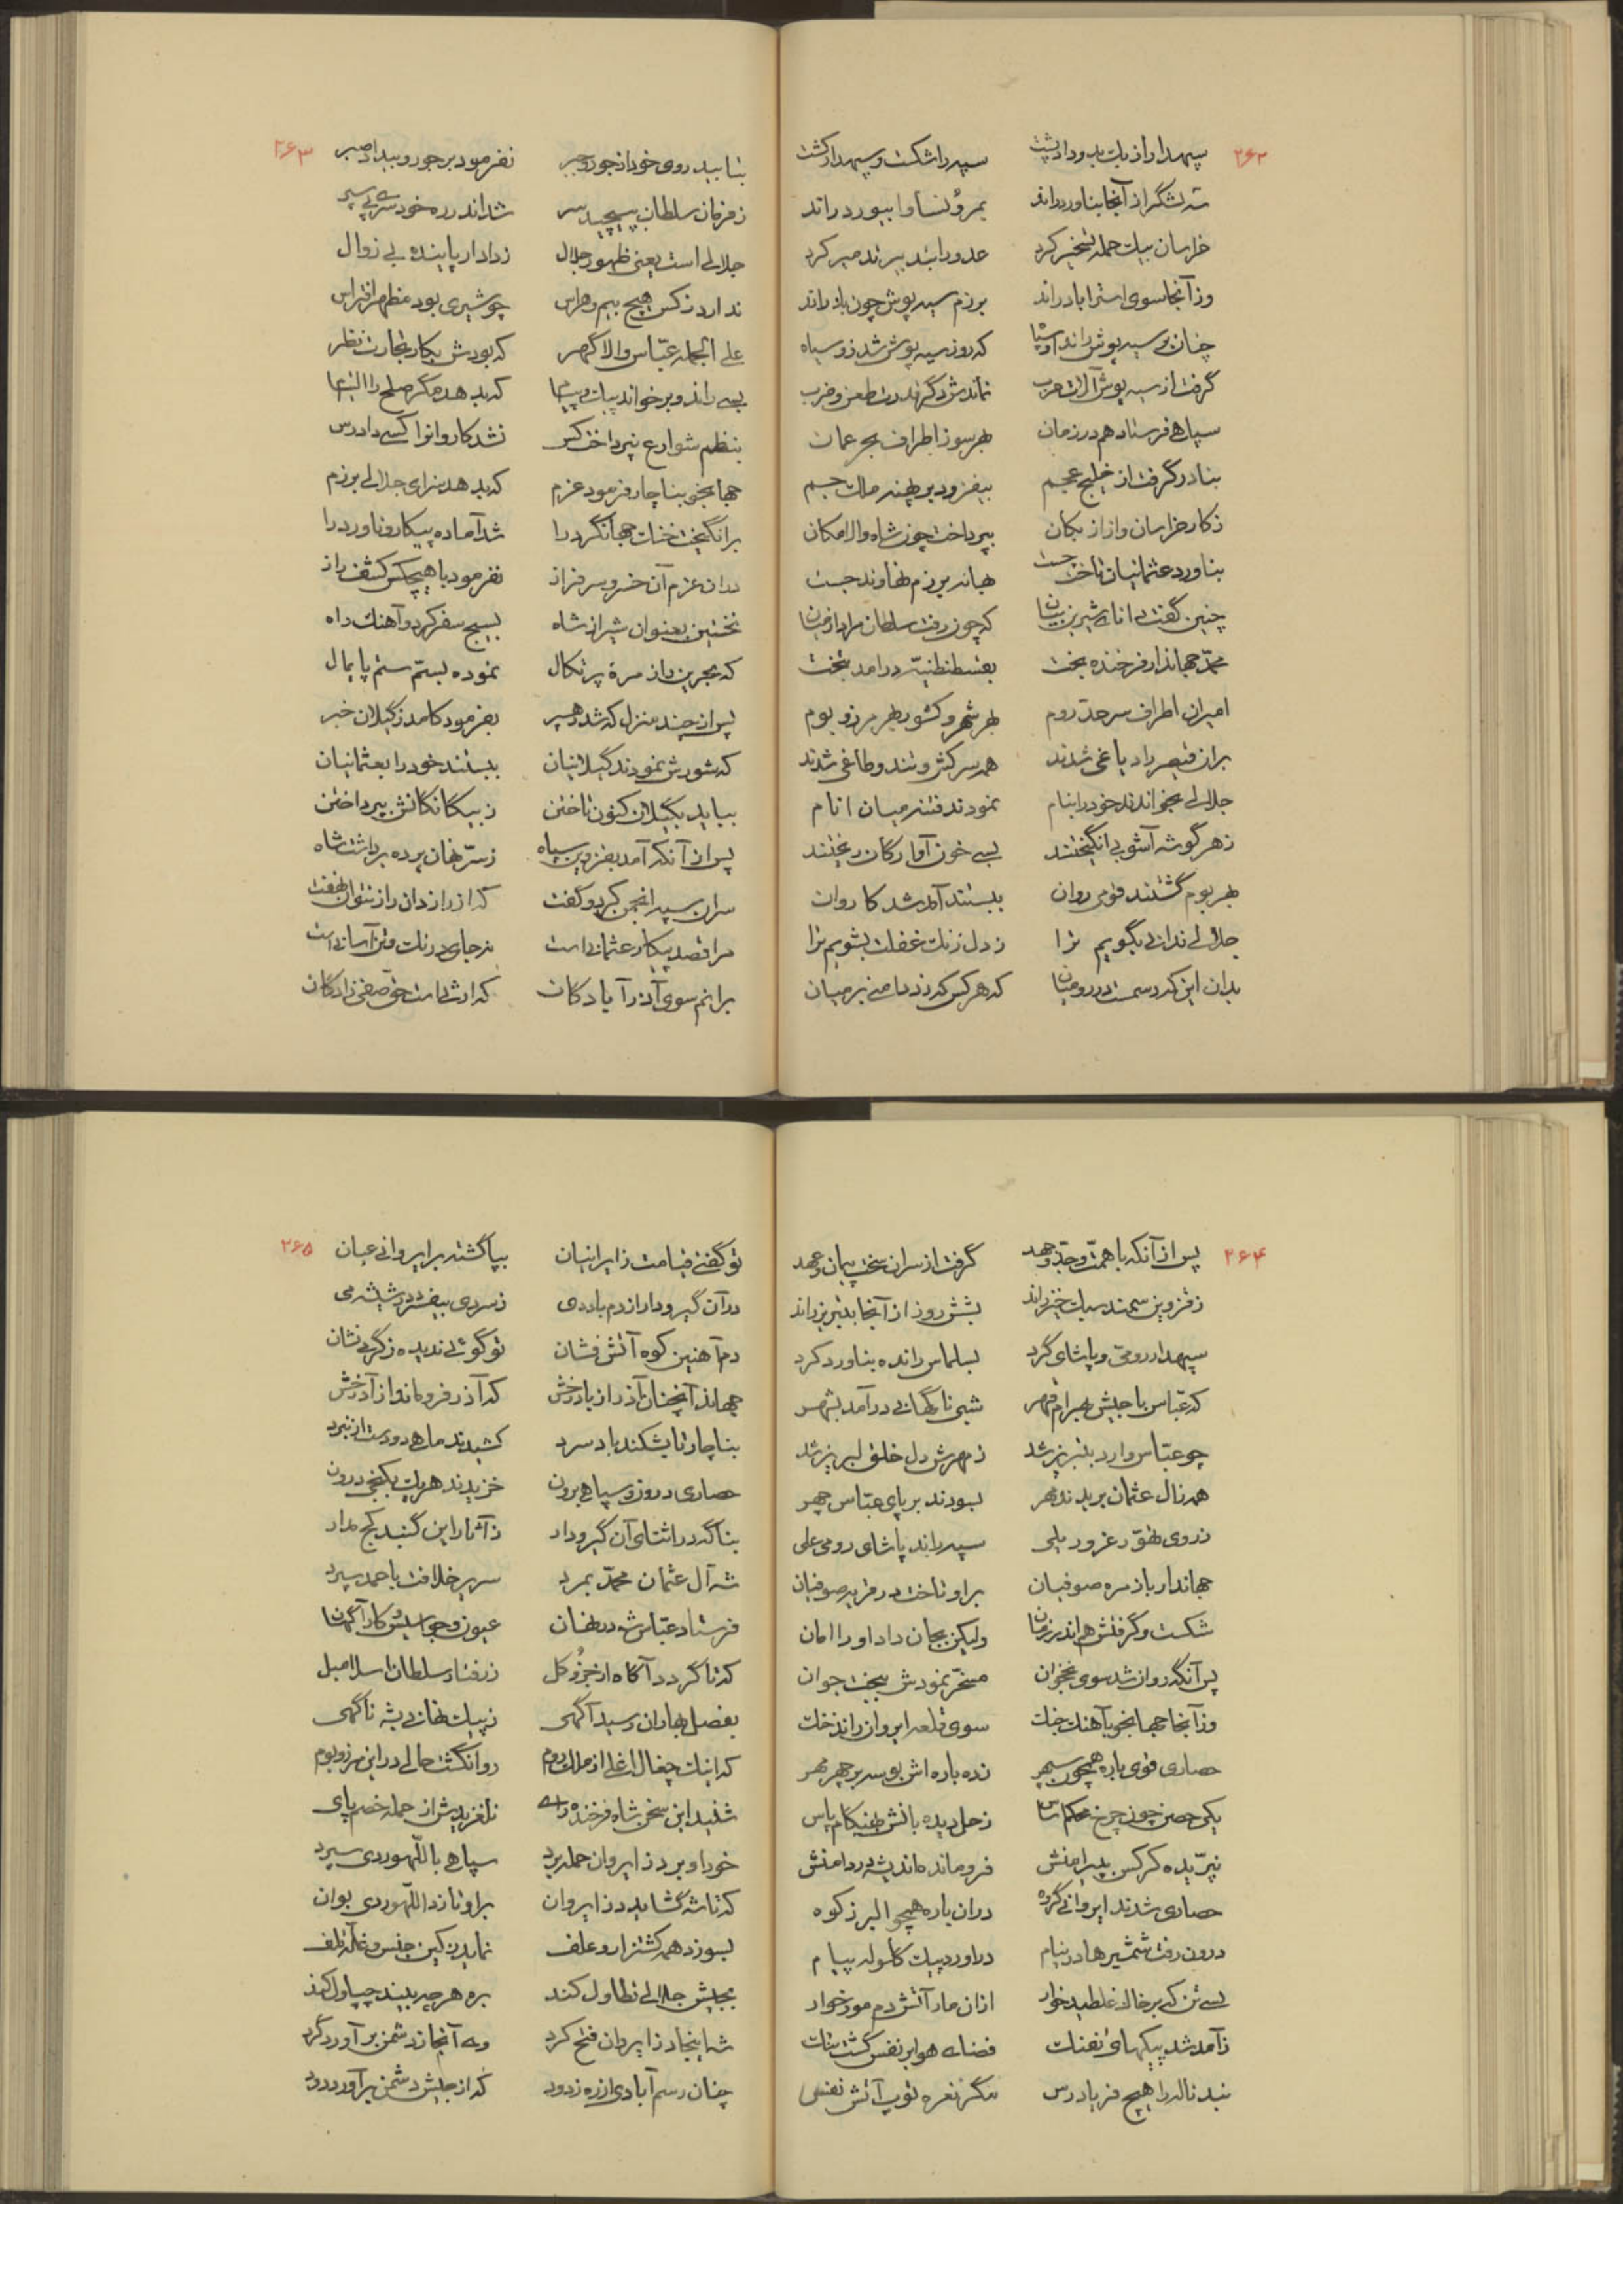 ۲۶۲
سپهدار از بك بدو داد پشت سپه را شکست و سپهدار کشت
شه لشگر از آنجا بناورد راند بمرو نسا و ابیورد راند
خراسان بیك حمله تسخیر کرد عدو را به بند
وز آنجا سوی استراباد راند برزم سیه پوش چون باد راند
چنان بر سیه پوش راند او سپاه که روز سیه پوش شد زو سیاه
گرفت از سیه پوش آلات حرب نماندش دگر قدرت طعن و ضرب
سپاهی فرستاد هم در زمان بهر سو ز اطراف بحر عمان
بنادر گرفت از خلیج عجم بیفزود بر پهنه ملك جم
ز کار خراسان و از ازبکان بپرداخت چون شاه والامکان
بناورد عثمانیان تاخت جست بهانه برزم نهاوند جست
چنین گفت دانای شیرین بیان که چون رفت سلطان مراد از میان
محمد جهاندار فرخنده بخت بقسطنطنیه درامد بتخت
امیران اطراف سرحد روم بهر شهر و کشور بهر مرز و بوم
بران قیصر راد یاغی شدند همه سرکش و تند و طاغی شدند
جلالی بخواندند خود را بنام نمودند فتنه میان انام
ز هر گوشه آشوبی انگیختند بسی خون آوارگان ریختند
بهر بوم گشتند قومی روان ببستند آمد شد کاروان
جلالی ندانی بگویم ترا ز دل زنك غفلت بشویم ترا
بدان این که رسمست در رومیان که هر کس که دزدد منی بر میان
۲۶۳
بتابید روی خود از جور و جبر نفرمود بر جور و بیداد صبر
ز فرمان سلطان بپیچید سر شد اندر ره خودسری پی سپر
جلالی است یعنی ظهور جلال ز دادار پاینده بی زوال
ندارد ز کس هیچ بیم و هراس چو شیری بود مظهر افتراس
علی الجمله عباس والا گهر که بودش بکار تجارت نظر
بسی راند و برخواند پیك و پیام که بدهد مگر صلح را التیام
بنظم شوارع نپرداخت کس نشد کاروانرا کسی دادرس
جهانجو بناچار فرمود عزم که بدهد سزای جلالی برزم
برانگیخت خنك جهانگرد را شد آماده پیکار و ناورد را
دران عزم آن خسرو سرفراز نفرمود با هیچکس کشف راز
نخستین بعنوان شیراز شاه بسیج سفر کرد و آهنك راه
که بحرین از مرة پرتکال نموده بستم ستم پایمال
پس از چند منزل که شد رهسپر بفرمود کامد ز گیلان خبر
که شورش نمودند گیلانیان ببستند خود را بعثمانیان
بباید بگیلان کنون تاختن ز بیگانگانش بپرداختن
پس از آنکه آمد بقزوین سپاه ز سر نهان پرده برداشت شاه
سران سپه انجمن کرد و گفت که از رازدان راز نتوان نهفت
مرا قصد پیکار عثمانی است نه جای درنك و تن آسانی است
برانم سوی آذرآبادگان که ارث است
۲۶۴
پس از آنکه با همت و جد و جهد گرفت از سران سخت پیمان و عهد
ز قزوین سمند سبك خیز راند بشش روز از آنجا بتبریز راند
سپهدار رومی و پاشای کرد بسلماس رانده بناورد کرد
که عباس با جیش بهرام قهر شبی ناگهانی درآمد بشهر
چو عباس وارد بتبریز شد ز مهرش دل خلق لبریز شد
همه ز ال عثمان بریدند مهر بسودند بر پای عباس چهر
ز روی تهور غرور یلی سپه راند پاشای رومی علی
جهاندار باز مره صوفیان بر او تاخت در قریه صوفیان
شکست و گرفتش هم اندر زمان ولیکن بجان داد او را امان
پس آنگه روان شد سوی نخجوان مسخر نمودش ببخت جوان
وز آنجا جهانجو بآهنك جنك سوی قلعه ایروان راند خنك
حصاری قوی باره همچون سپهر زده باره اش بوسه بر چهر مهر
یکی حصن چون چرخ محکم اساس زحل دیده بانش بهنگام پاس
نپریده کرکس به پیرامنش فرومانده اندیشه در دامنش
حصاری شدند ایروانی گروه دران باره همچو البرز کوه
درون رفت شمشیرها در نیام دراورد پیك گلوله پیام
بسی تن که بر خاك غلطید خوار ازان مار آتش دم مورخوار
ز آمد شد پیکهای تفنك فضای هوا بر نفس گشت تنك
نبد ناله را هیچ فریادرس مگر نعره توپ آتش نفس
۲۶۵
تو گفتی قیامت ز ایرانیان بپا گشته بر ایروانی عیان
در آن گیرودار از دم باد دی ز سردی بیفسرد در شیشه می
دم آهنین کوه آتش فشان تو گوئی ندیده ز گرمی نشان
جهاند آنچنان آذر از باد رخش که آذر فروماند از آذرخش
بناچار تا بشکند باد سرد کشیدند ماهی دو دست از نبرد
حصاری درون و سپاهی برون خزیدند هر یك بکنجی درون
بناگه در اثنای آن گیرودار ز آثار این گنبد کج مدار
شه آل عثمان محمد بمرد سریر خلافت باحمد سپرد
فرستاد عباس شه در نهان عیون و جواسیس کارآگهان
که تا گردد آگاه از جزو کل ز رفتار سلطان اسلامبل
بفصل بهاران رسید آگهی ز پیك نهانی بشه ناگهی
که اینك چغال اغلی از ملك روم روان گشت حالی در این مرز و بوم
شنید این سخن شاه فرخنده رای نلغزیدش از حمله خصم پای
خود او بر دز ایروان حمله برد سپاهی باللهوردی سپرد
که تا شه گشاید دز ایروان بر او تازد اللهوردی بوان
بسوزد همه کشتزار و علف نماید زکین جنس و غله تلف
بجیش جلالی تطاول کند بره هر چه بیند چپاول کند
شه اینجا دز ایروان فتح کرد وی آنجا ز دشمن برآورد گرد
چنان رسم آبادی از ره زدود که از جیش دشمن برآورد دود